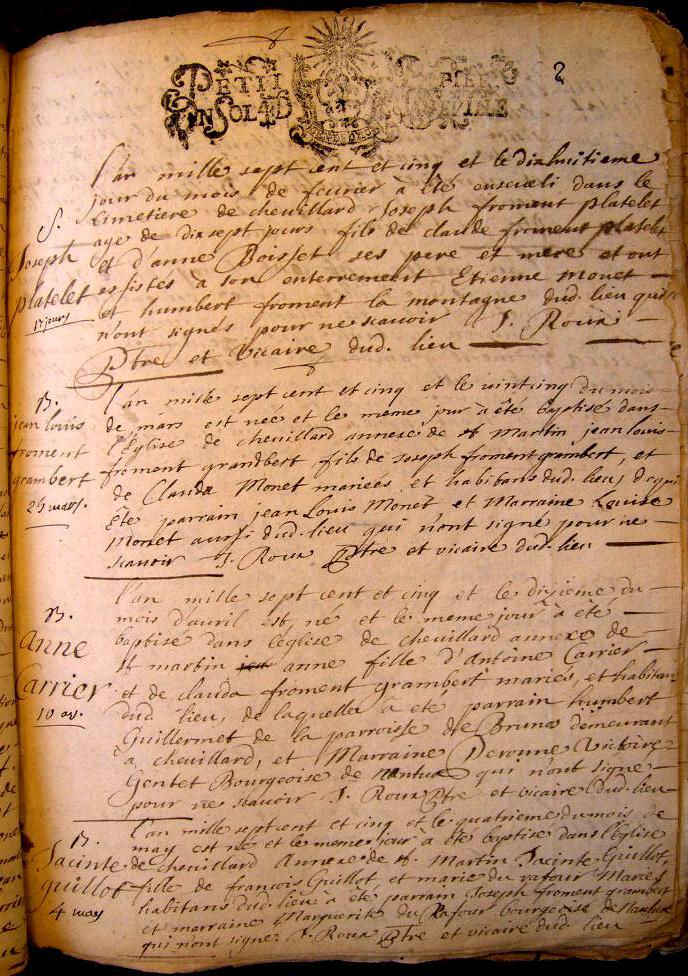 PETIT PAPIER
UN SOL 4 D
2
L'an mille sept cent et cinq et le dixhuitieme
jour du mois de feurier à été enseueli dans le
cimetiere de cheuillard Joseph froment platelet
age de dix sept jours fils de claude froment platelet
et d'anne Boisset ses pere et mere et ont
assistés à son enterrement Etienne monet
et humbert froment la montagne dud. lieu qui
n'ont signés pour ne scauoir J. Roux
Ptre et vicaire dud. lieu
S.
Joseph
platelet
17 jours
L'an mille sept cent et cinq et le vintcinq du mois
de mars est née et le même jour à été baptisé dans
l'église de cheuillard annexe de st Martin jean louis
froment grambert fils de joseph froment grambert, et
de Clauda Monet mariées et habitans dud. lieu, de qui
été parrain jean Louis Monet et Marraine Louise
Monet aussi dud. lieu qui n'ont signé pour ne
scauoir J. Roux Ptre et vicaire dud. lieu
B.
jean louis
froment
grambert
25 mars.
l'an mille sept cent et cinq et le dixieme du
mois d'auril est né et le meme jour à été
baptisé dans l'église de cheuillard annexe de
st martin anne fille d'Antoine Carrier
et de clauda froment grambert mariés, et habitans
dud. lieu, de laquelle à été parrain humbert
Guillermet de la parroisse de Brunas demeurant
à cheuillard, et Marraine Peronne Victoire
Gentet Bourgeoise de nantua qui n'ont signe
pour ne scauoir J. Roux Ptre et vicaire dud. lieu
B.
Anne
Carrier
10 av.
l'an mille sept cent et cinq et le quatrieme du mois de
may est né et le meme jour à été baptisé dans l'église
de cheuillard Annexe de st. Martin Jacinte Guillot,
fille de françois Guillot et marie du rafour Mariés
habitans dud. lieu à été parrain Joseph froment grambert
et marraine Marguerite du Rafour bourgeoise de Nantua
qui n'ont signe J. Roux Ptre et vicaire dud. lieu
B.
Jacinte
guillot
4 may